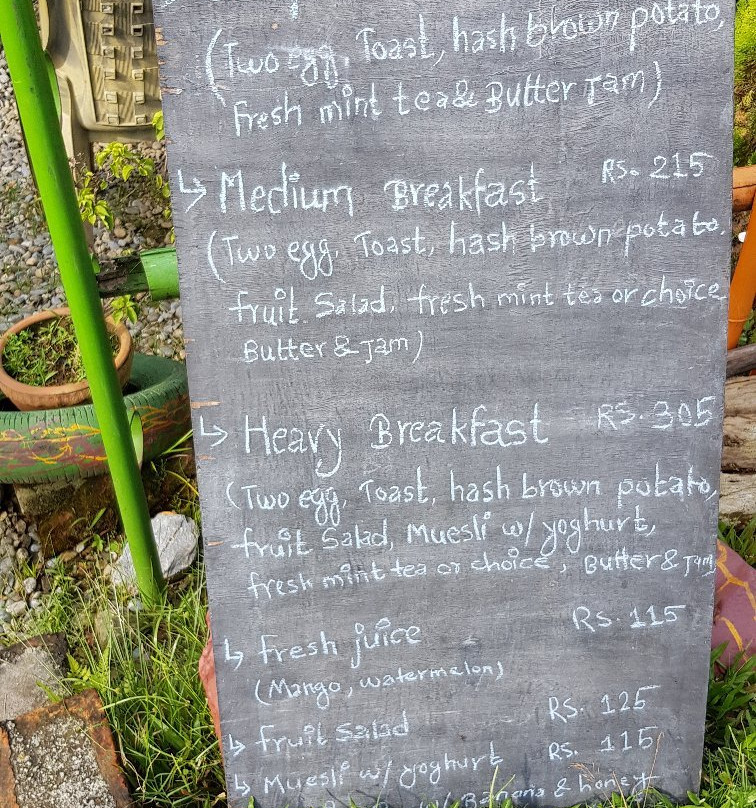 (Two egg, Toast, hash brown potato,
fresh mint tea & Butter Jam)
↳ Medium Breakfast RS. 215
(Two egg, Toast, hash brown potato,
fruit Salad, fresh mint tea or choice
Butter & Jam)
↳ Heavy Breakfast RS. 305
(Two egg, Toast, hash brown potato,
fruit Salad, Muesli w/ yoghurt,
fresh mint tea or choice, Butter & Jam
↳ fresh juice RS. 115
(Mango, watermelon)
↳ fruit Salad RS. 125
↳ Muesli w/ yoghurt RS. 115
w/ Banana & honey